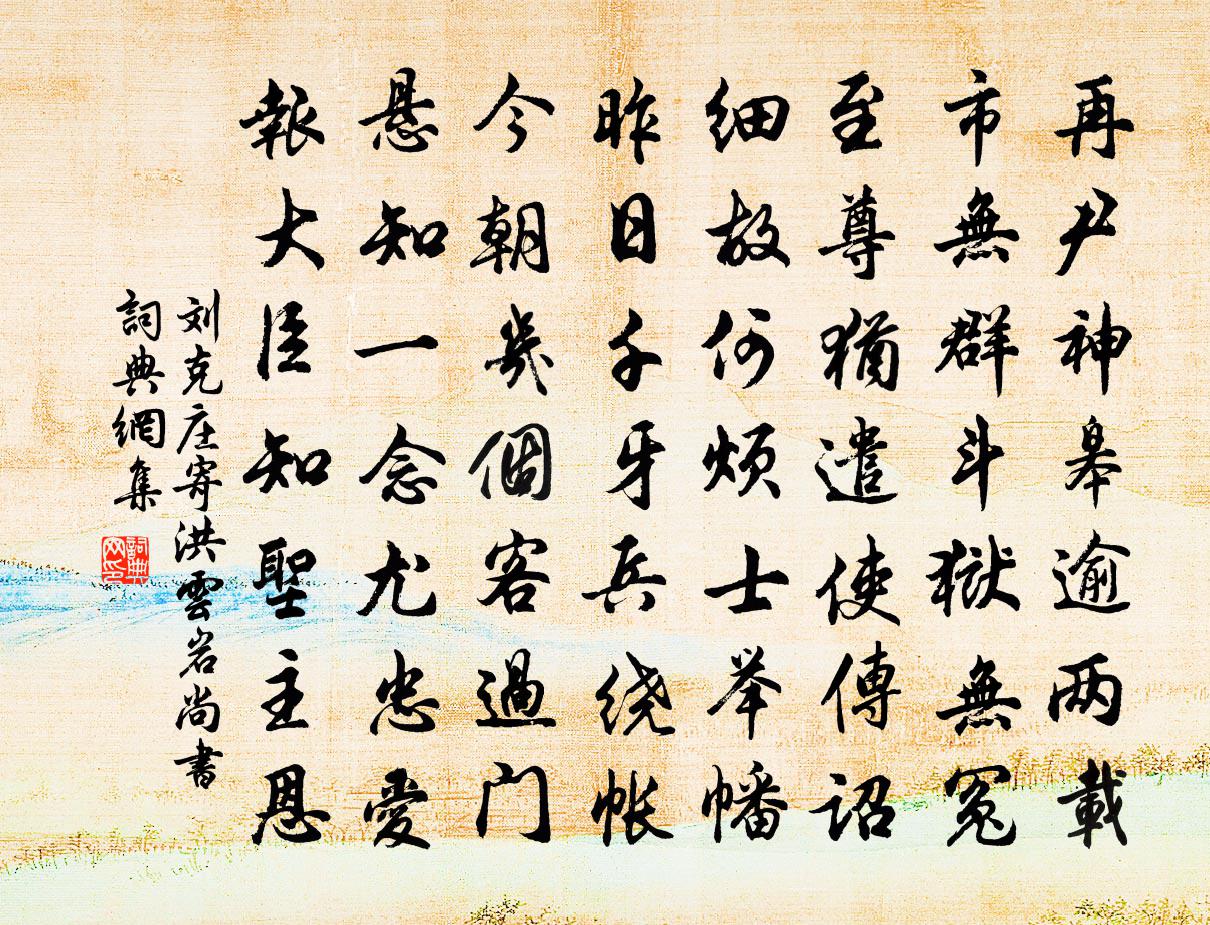 再尹神皋逾两載
市無群斗獄無冤
至尊猶遣使傳詔
细故何烦士举幡
昨日千牙兵绕帐
今朝幾個客過门
悬知一念尤忠愛
報大臣知聖主恩
刘克庄寄洪雲岩尚書
詞典網集
詞典网印